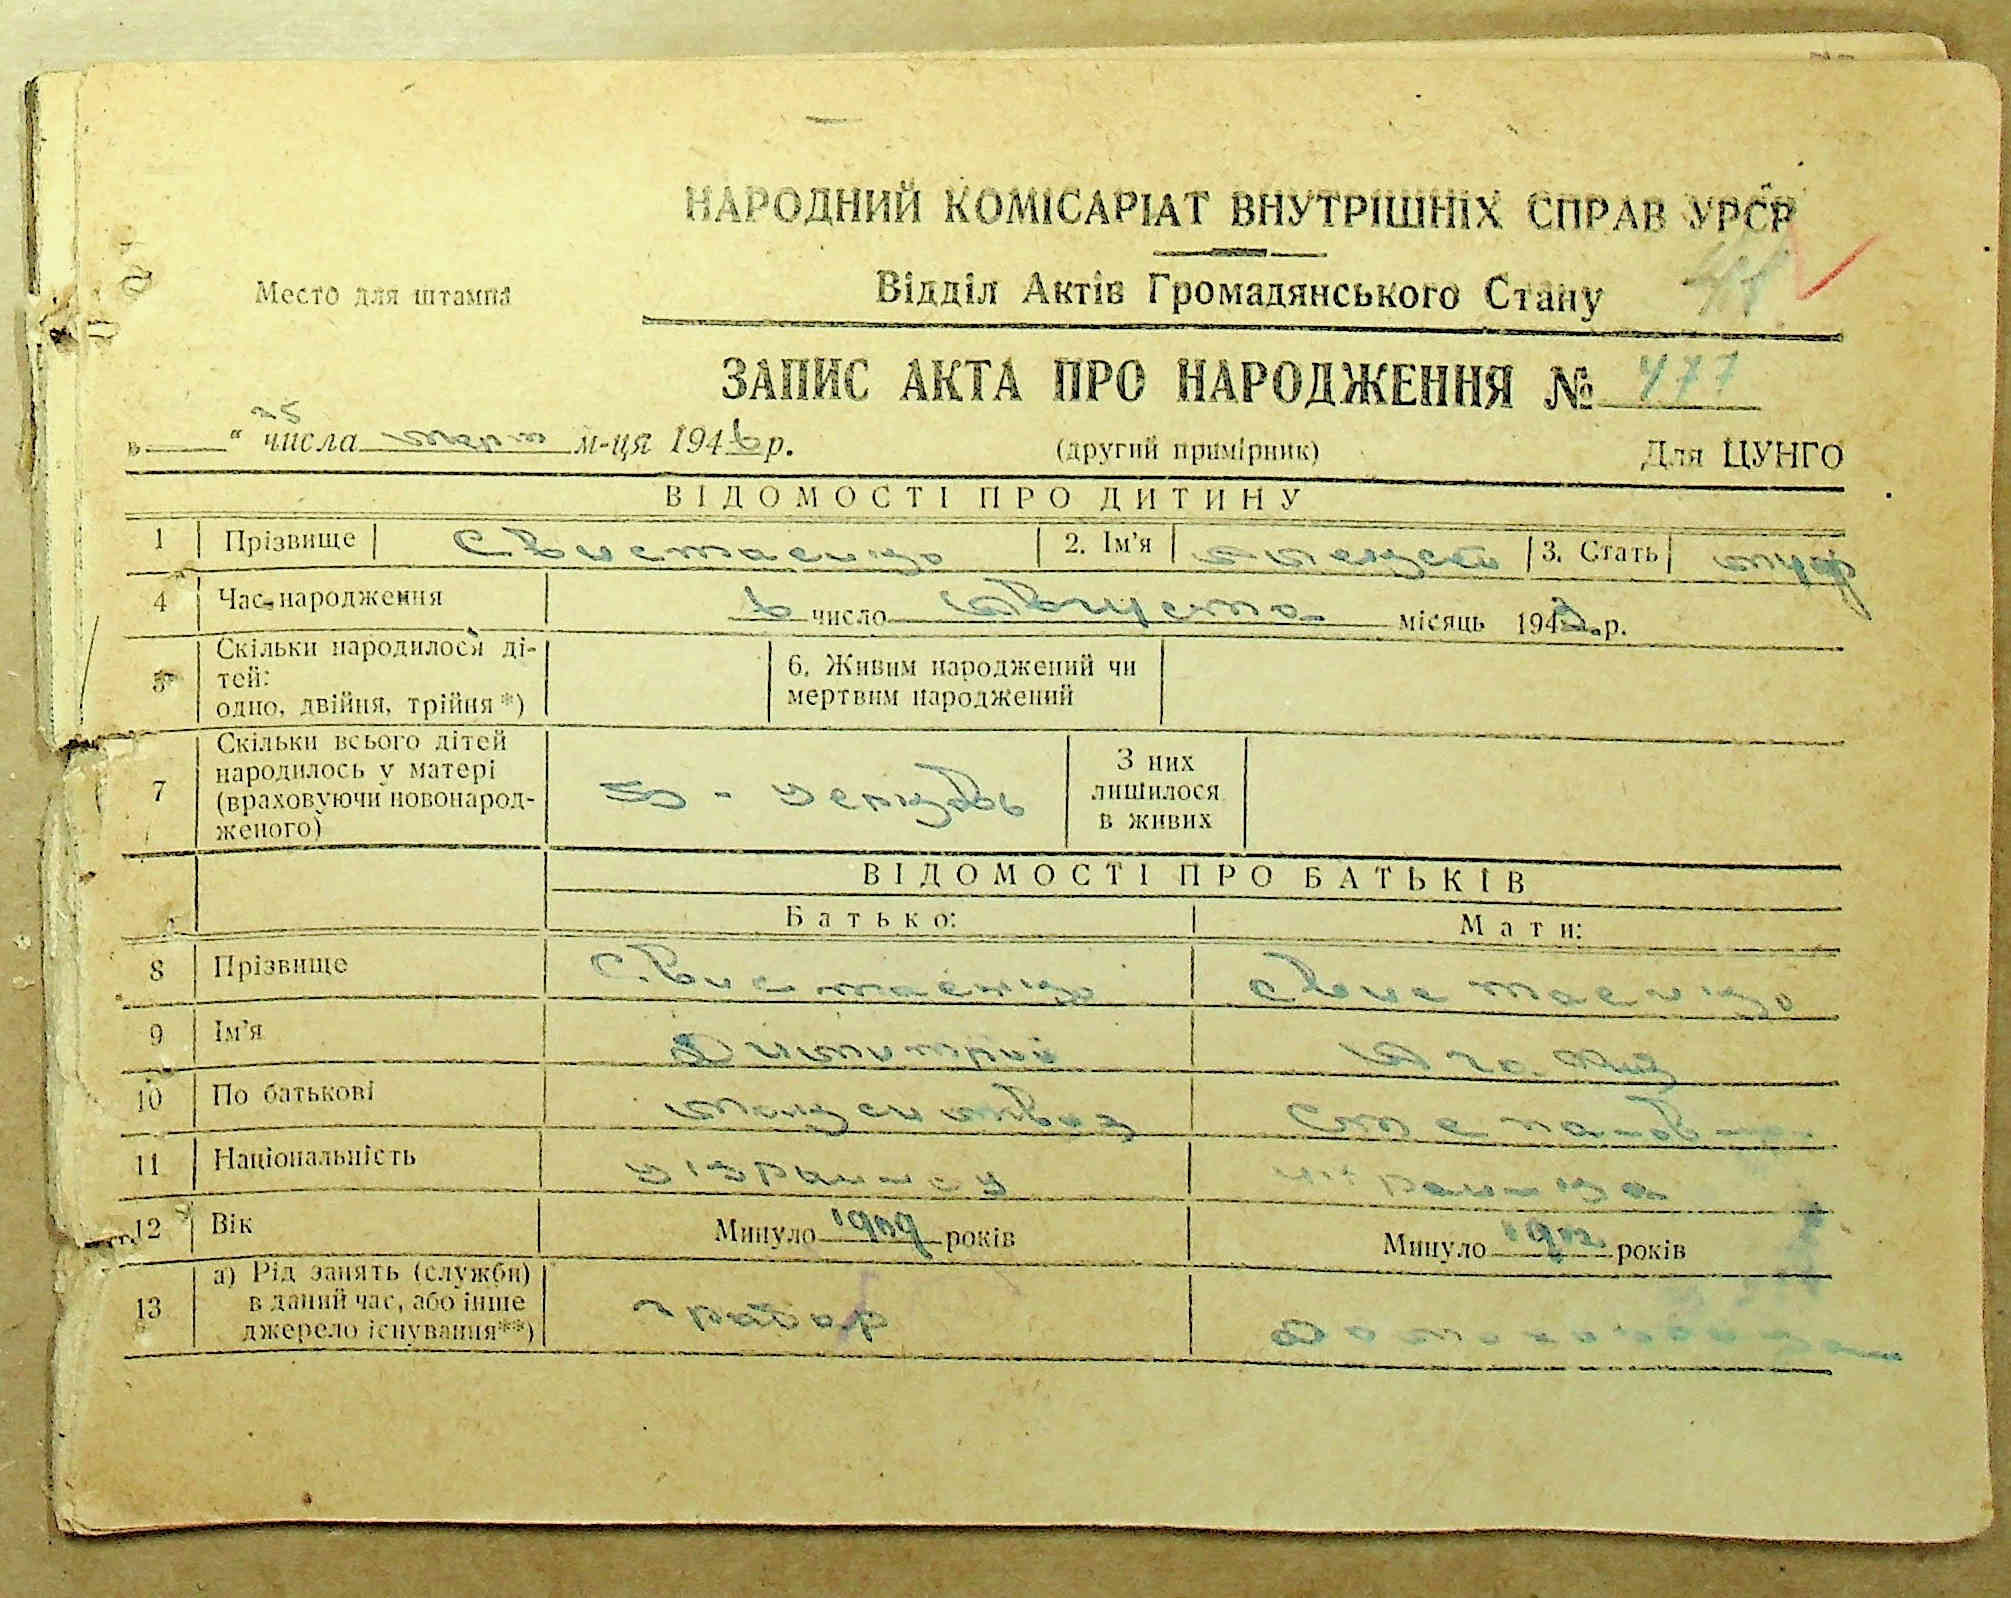 НАРОДНИЙ КОМІСАРІАТ ВНУТРІШНІХ СПРАВ УРСР
Место для штампа
Відділ Актів Громадянського Стану
ЗАПИС АКТА ПРО НАРОДЖЕННЯ № 477
„ “ 25 числа март м-ця 1946 р. (другий примірник) Для ЦУНГО
ВІДОМОСТІ ПРО ДИТИНУ
1 Прізвище 2. Ім’я 3. Стать муж
4 Час народження 6 число августа місяць 194 р.
5 Скільки народилося ді-
тей:
одно, двійня, трійня *)
6. Живим народжений чи
мертвим народжений
7 Скільки всього дітей
народилось у матері
(враховуючи новонарод-
женого)
З них
лишилося
в живих
ВІДОМОСТІ ПРО БАТЬКІВ
Батько: Мати:
8 Прізвище
9 Ім’я Димитрий Агафия
10 По батькові
11 Національність
12 Вік Минуло 1909 років Минуло років
13 а) Рід занять (служби)
в даний час, або інше
джерело існування**)
грабар